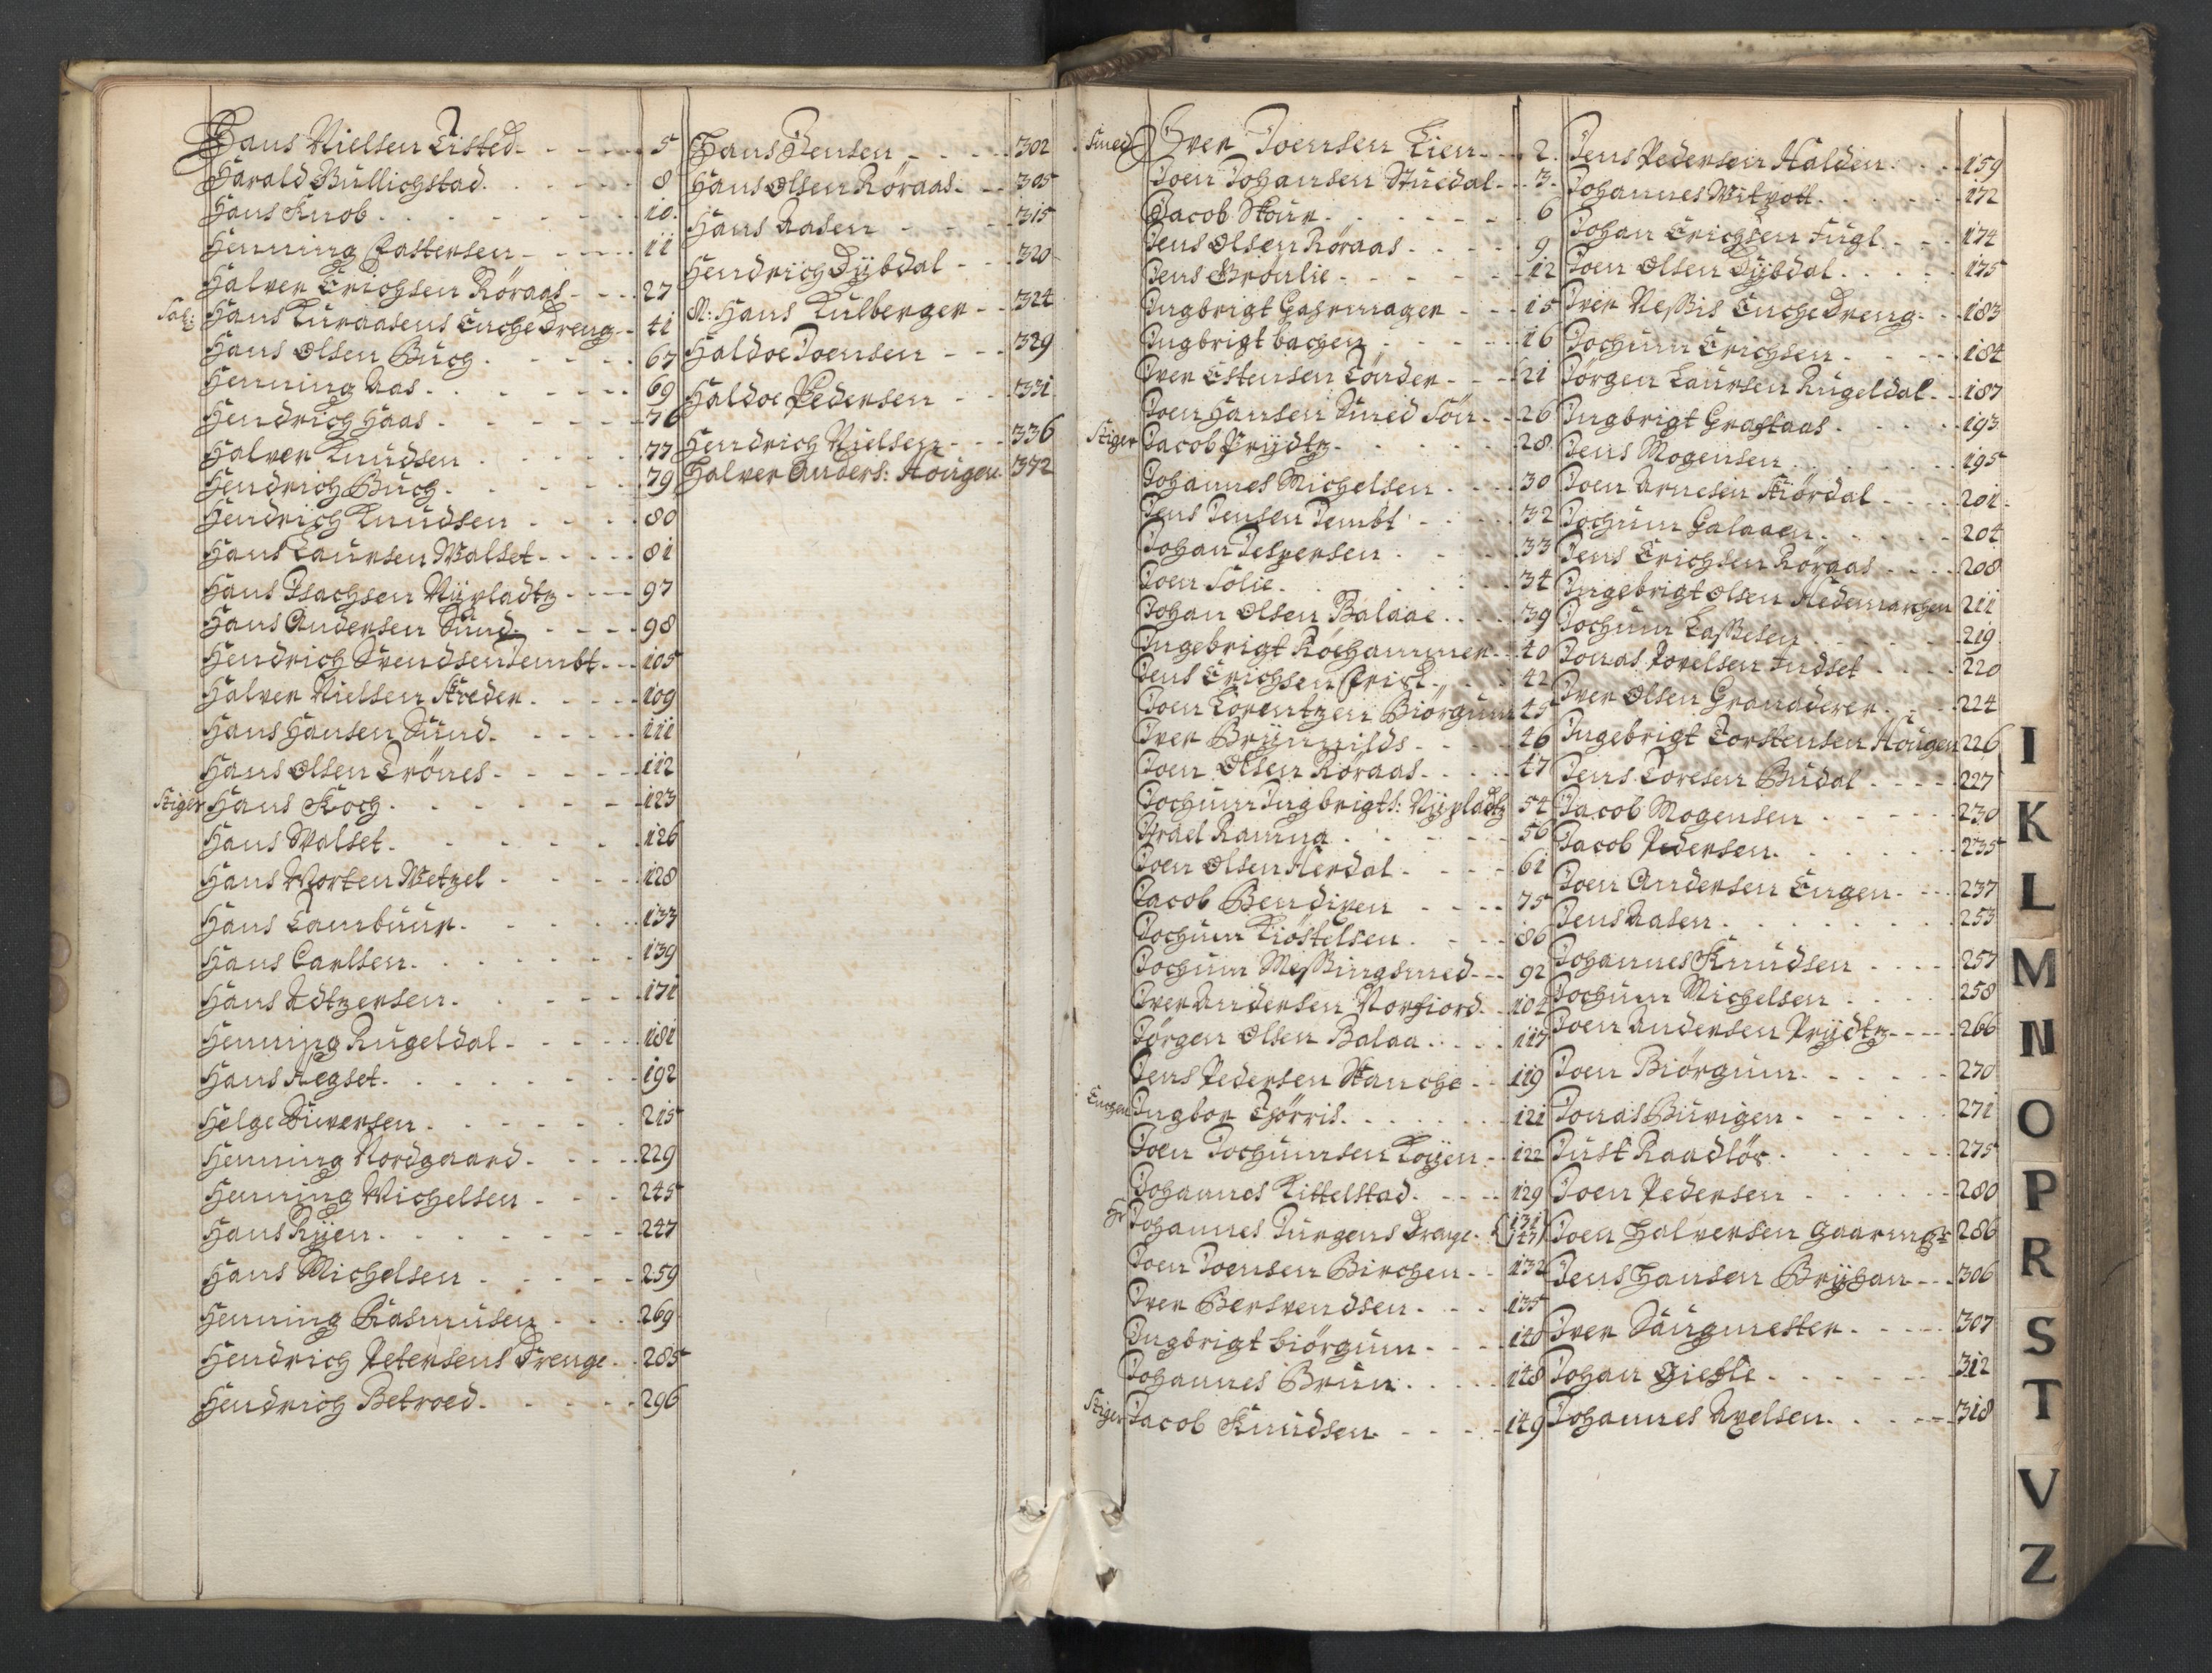 Hans Nielsen Eisted 5
Harald Bullichstad 8
Hans Knob 10
Henning Carstensen 11
Halver Erichsen Röraas 27
Sal: Hans Kuraasens Encke Dreng 41
Hans Olsen Buch 67
Henning Aas 69
Hendrich Haas 76
Halver Knudsen 77
Hendrich Buch 79
Hendrich Knudsen 80
Hans Laursen Walset 81
Hans Isachsen Nÿpladtz 97
Hans Andersen Sund 98
Hendrich Svendsen Jembt 105
Halver Nielsen Skreder 109
Hans Hansen Sund 111
Hans Olsen Trönes 112
Stiger Hans Koch 123
Hans Walset 126
Hans Morten Wetzel 128
Hans Tambuur 133
Hans Carlsen 139
Hans Adtzersen 171
Henning Rugeldal 181
Hans Aegset 192
Helge Siversen 215
Henning Nordgaard 229
Henning Michelsen 245
Hans Rÿen 247
Hans Michelsen 259
Henning Rasmusen 269
Hendrich Petersens Drenge 285
Hendrich Betroed 296
Hans Jensen 302
Hans Olsen Röraas 305
Hans Aasen 315
Hendrich Dÿbdal 320
M: Hans Kulberger 324
Haldoe Joensen 329
Haldoe Pedersen 331
Hendrich Nielsen 336
Halver Anders: Hougen 372
Smed Iver Joensen Lien 2
Joen Johansen Stuedal 3
Jacob Stour 6
Jens Olsen Röraas 9
Jens Brönlie 12
Ingbrigt Gasmager 15
Ingbrigt bachen 16
Iver Estensen Tönder 21
Joen Hansen Smed Sön 26
Stiger Jacob Prÿdtz 28
Johannes Michelsen 30
Jens Jensen Jembt 32
Johan Jespersen 33
Joen Solie 34
Johan Olsen Balaae 39
Ingebrigt Röchammer 40
Jens Erichsen Frisk 42
Joen Lorentzen Biörgum 45
Iver Brÿnnilds 46
Joen Olsen Röraas 47
Jochum Ingbrigts: Nÿpladtz 54
Israel Ramna 56
Joen Olsen Aerdal 61
Jacob Bendixen 75
Jochum Kiöstelsen 86
Jochum Messingsmed 92
Iver Andersen Norfiord 104
Jörgen Olsen Balaa 117
Jens Pedersen Stanche 119
Enchen Ingbor Thörris 121
Joen Jochumsen Koÿen 122
Johannes Kittelstad 129
Hr Johannes Jürgens Drenge {131 147}
Joen Joensen Birchen 132
Iver Bersvendsen 135
Ingbrigt biörgum 140
Johannes Brun 148
Stiger Jacob Knudsen 149
Jens Pedersen Halden 159
Johannes Witzott 172
Johan Erichsen Fugl 174
Joen Olsen Dÿbdal 175
Iver Nessis Encke Dreng 183
Jochum Erichsen 184
Jörgen Laursen Rugeldal 187
Ingbrigt Graftaas 193
Jens Mogensen 195
Joen Arnesen Stiördal 201
Jochum Galaaen 204
Jens Erichsen Röraas 208
Ingebrigt Olsen Hedemarchen 211
Jochum Lassesen 219
Jonas Povelsen Indset 220
Iver Olsen Granaderer 224
Ingebrigt Torstensen Hougen 226
Jens Toresen Budal 227
Jacob Mogensen 230
Jacob Pedersen 235
Joen Andersen Engen 237
Jens Aasen 253
Johannes Knudsen 257
Jochum Michelsen 258
Joen Andersen Prÿdtz 266
Joen Biörgum 270
Jonas Burigen 271
Just Raadlös 275
Joen Pedersen 280
Joen Halversen Gaarmgr 286
Jens Hansen Brÿhan 306
Iver Saugmester 307
Johan Giesle 312
Johannes Axelsen 318
I
K
L
M
N
O
P
R
S
T
V
Z